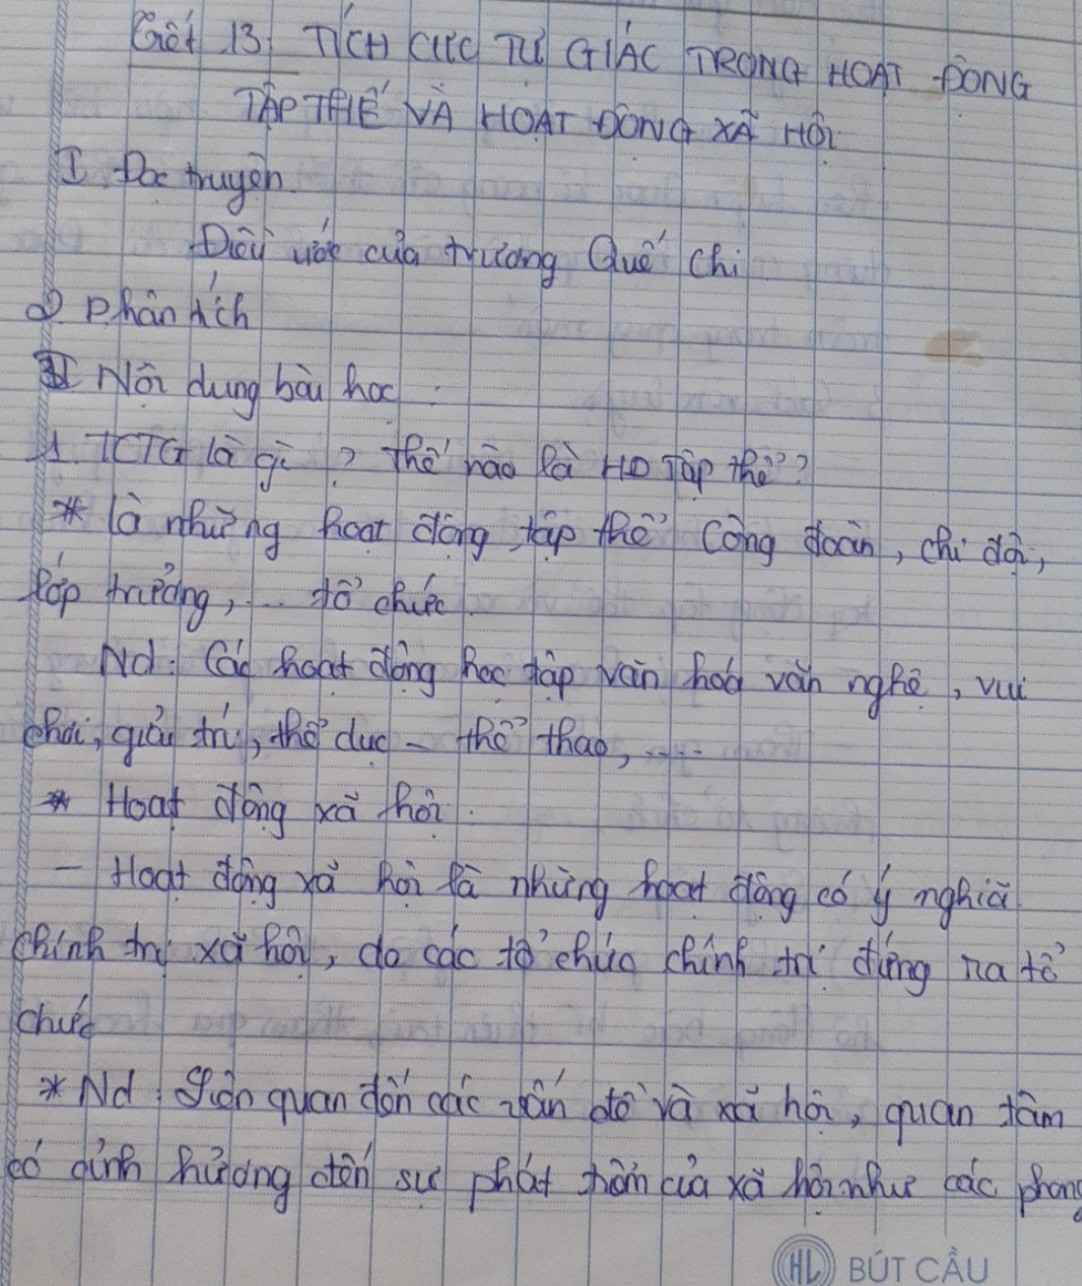 Tiết 13 TÍCH CỰC TỰ GIÁC TRONG HOẠT ĐỘNG
TẬP THỂ VÀ HOẠT ĐỘNG XÃ HỘI
I Đọc truyện.
Điều ước của trương Quế Chi
2) Phân tích
II Nội dung bài học :
1. TCTG là gì ? thế nào là HĐ Tập thể ?
* là những hoạt động tập thể Công đoàn, chi đội,
lớp trưởng, ... tổ chức.
Nd: Các hoạt động học tập văn hoá văn nghệ, vui
chơi, giải trí, thể dục - thể thao, .....
* Hoạt động xã hội.
- Hoạt động xã hội là những hoạt động có ý nghĩa
chính trị xã hội, do các tổ chức chính trị đứng ra tổ
chức
* Nd: Liên quan đến các vấn đề và xã hội, quan tâm
có định hướng đến sự phát triển của xã hội như các phong
HL BÚT CẦU